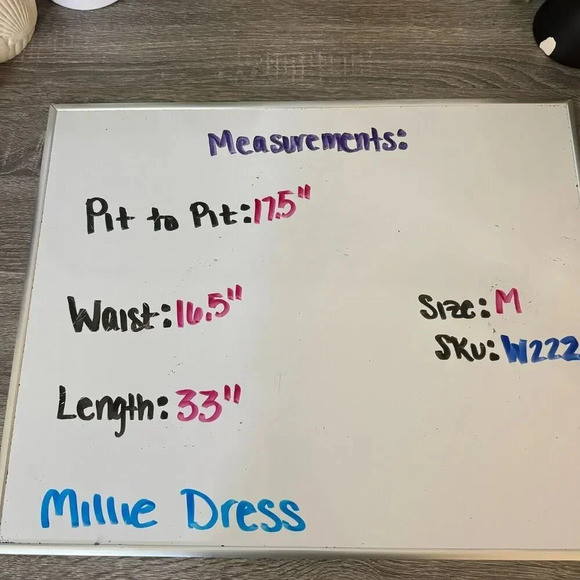 Measurements:
Pit to Pit: 17.5"
Waist: 16.5"
Size: M
SKU: W222
Length: 33"
Millie Dress